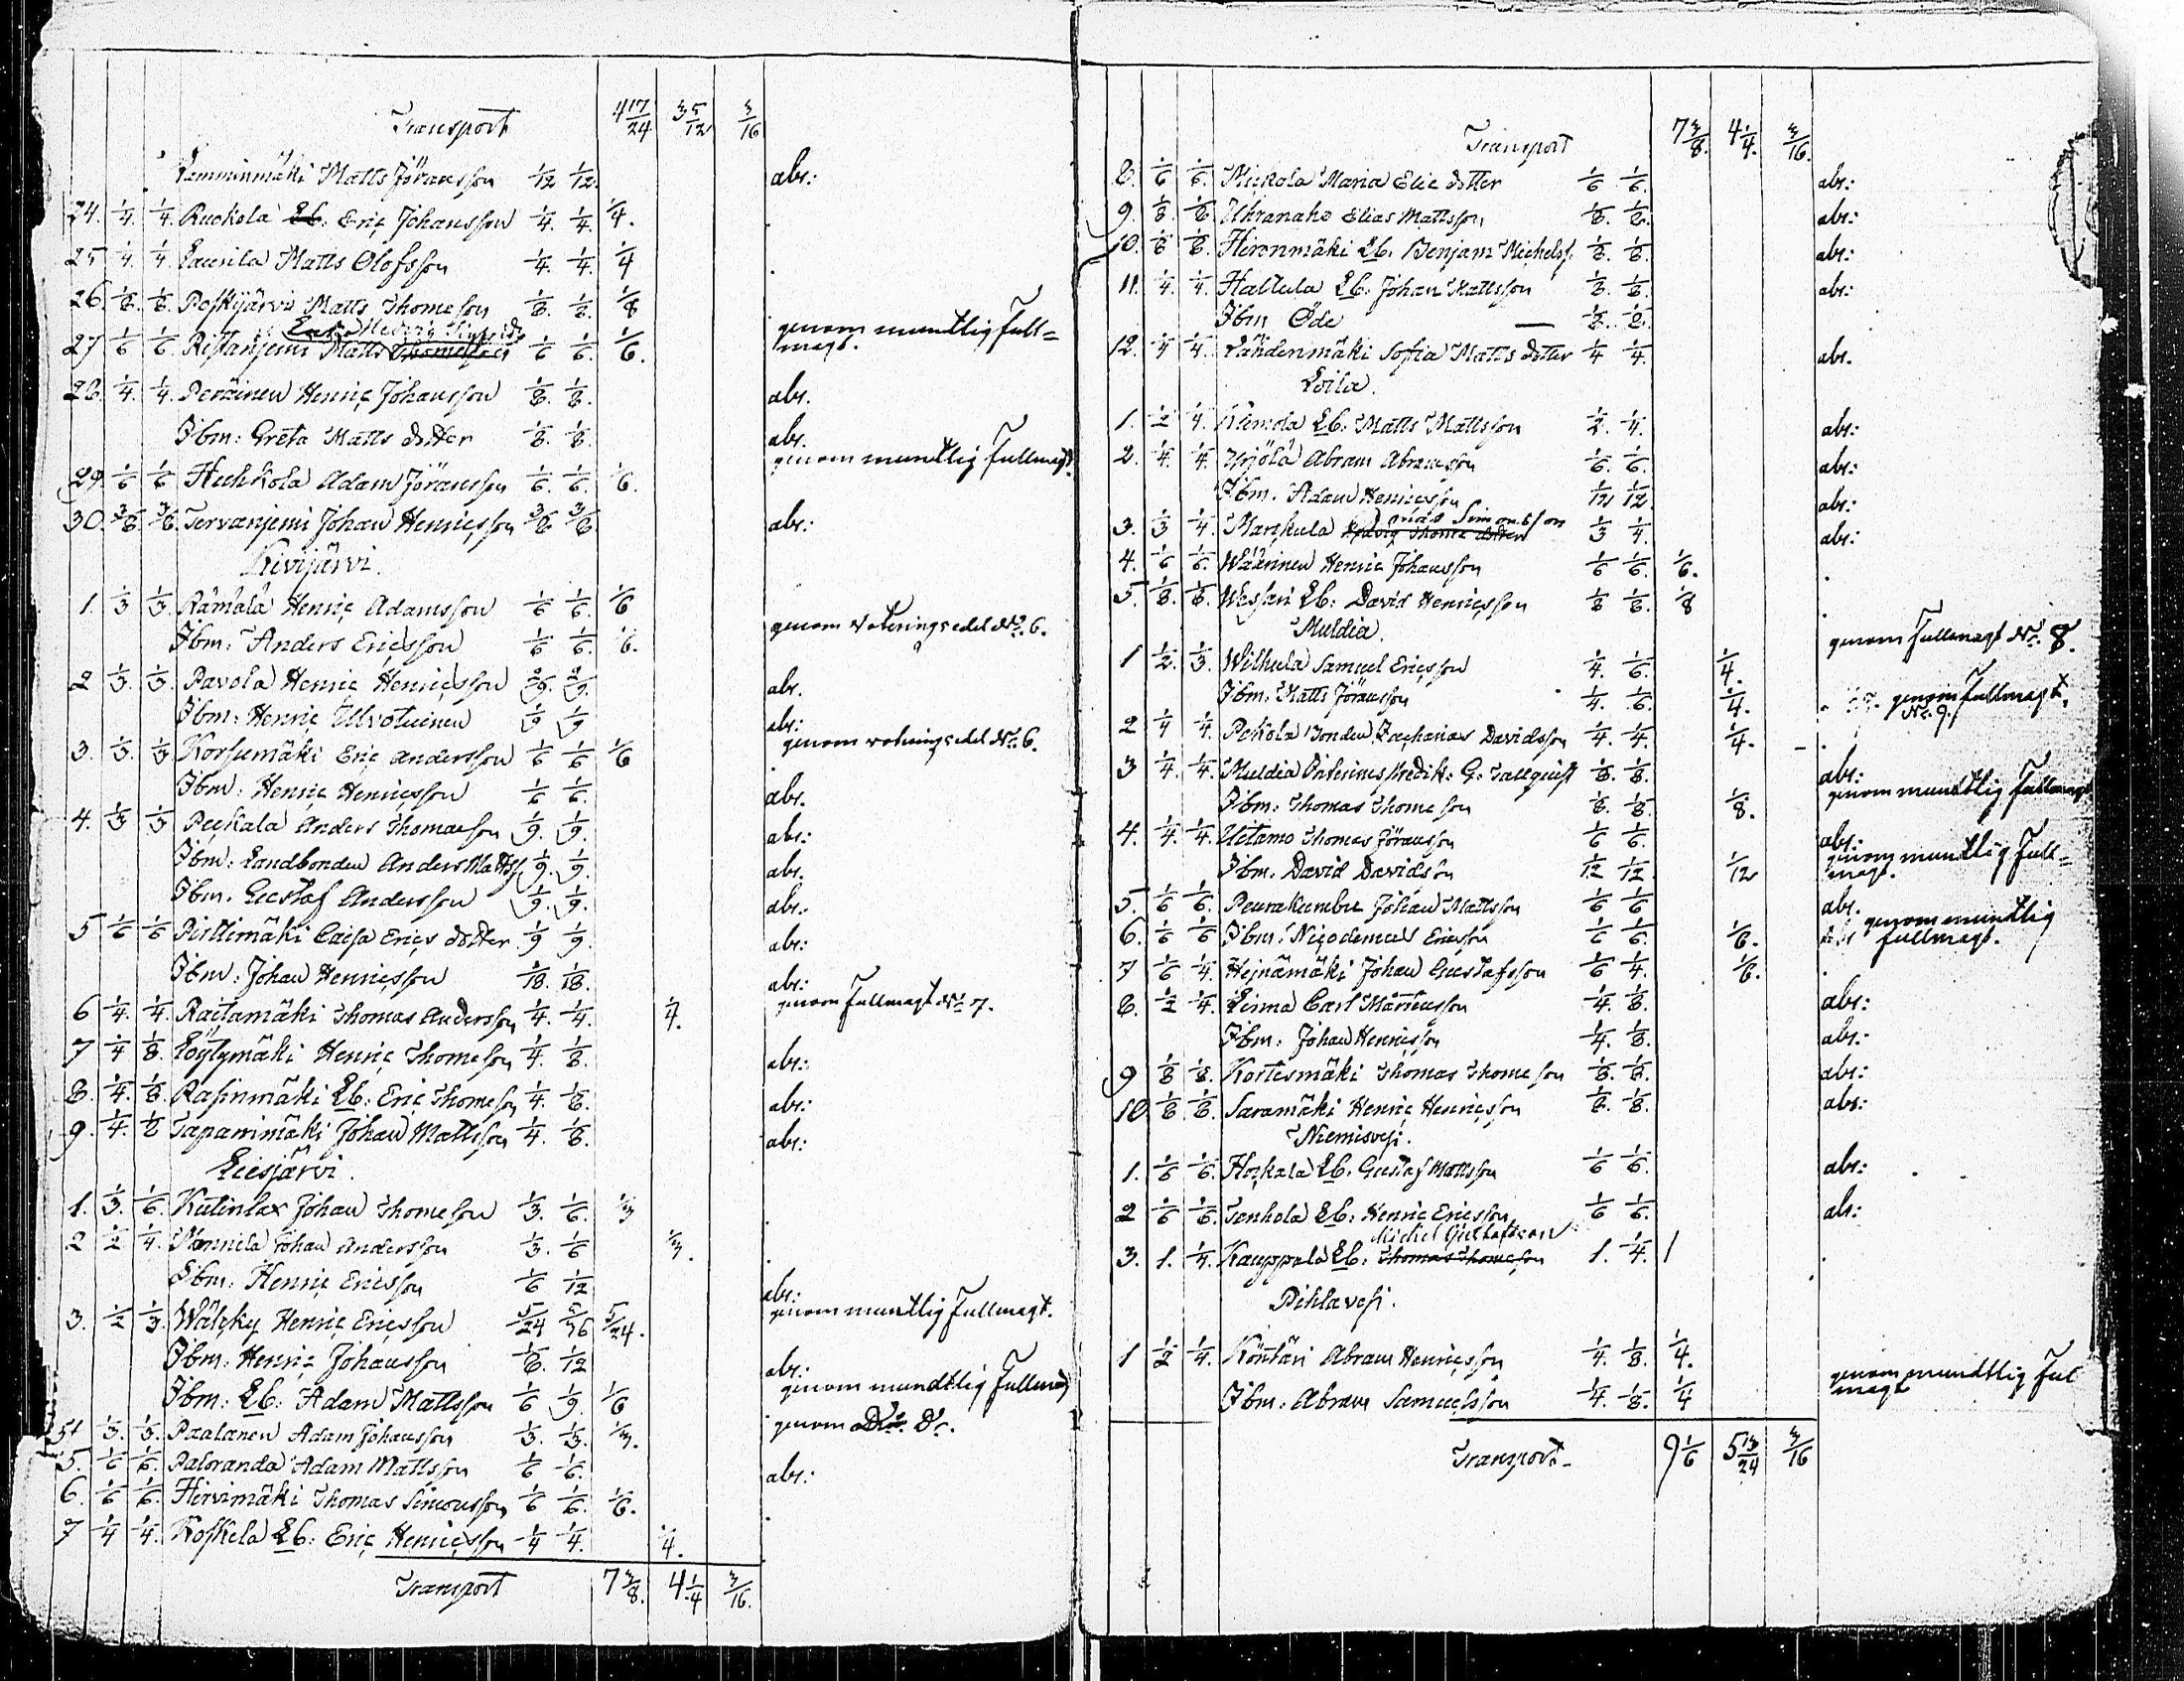 Transport 4 17/24 3 5/12 3/16
Lemminmäki Matts Jöransson 1/12 1/12. abs:
24. 1/4. 1/4. Ruokola Lb. Eric Johansson 1/4. 1/4. 1/4.
25 1/4. 1/4. Laurila Matts Olofsson 1/4. 1/4. 1/4
26. 1/8. 1/8. Poskijärvi Matts Thomesson 1/8. 1/8. 1/8
27 1/6 1/6. Ristanjemi Matts Thomesson 1/6 1/6. 1/6. genom muntlig full=
magt.
28. 1/4. 1/4. Peräinen Henric Johansson 1/8. 1/8. abs.
Ibm: Greta Matts dotter 1/8. 1/8. abs.
29. 1/6 1/6 Huhkola Adam Jöransson 1/6. 1/6. 1/6. genom muntlig fullmagt.
30. 3/8 3/8. Tervanjemi Johan Henricsson 3/8 3/8. abs:
Kivijärvi.
1. 1/3 1/3. Rämälä Henric Adamsson 1/6 1/6. 1/6
Ibm: Anders Ericsson 1/6 1/6. 1/6. genom voteringsedel No. 6.
2 1/3. 1/3. Pavola Henric Henricsson 2/9. 2/9. abs.
Ibm: Henric Ulvotuinen 1/9 1/9 abs:
3. 1/3. 1/3 Korsumäki Eric Andersson 1/6 1/6 1/6 genom voteringsedel No. 6.
Ibm: Henric Henricsson 1/6 1/6. abs.
4. 1/3 1/3 Peckala Anders Thomasson 1/9. 1/9. abs:
Ibm: Landbonden Anders Mattss. 1/9. 1/9. abs.
Ibm. Gustaf Andersson 1/9. 1/9. abs:
5 1/6 1/6 Pisttimäki Caisa Erics dotter 1/9 1/9. abs:
Ibm: Johan Henricsson 1/18. 1/18. abs:
6 1/4. 1/4. Raitamäki Thomas Andersson 1/4. 1/4. 1/4. genom Fullmagt No 7.
7 1/4 1/8. Löytymäki Henric Thomesson 1/4. 1/8. abs:
8. 1/4. 1/8. Rasinmäki Lb: Eric Thomesson 1/4. 1/8. abs:
9. 1/4. 1/8 Tapanimäki Johan Mattsson 1/4. 1/8. abs:
Liesjärvi.
1. 1/3. 1/6. Kutinlax Johan Thomesson 1/3. 1/6. 1/3
2 1/2 1/4. Nonnila Johan Andersson 1/3. 1/6 1/3.
Ibm: Henric Ericsson 1/6 1/12 abs:
3. 1/2 1/3. Wälcky Henric Ericsson 5/24 5/36 5/24. genom muntlig Fullmagt.
Ibm: Henric Johansson 1/8. 1/12 abs:
Ibm: Lb: Adam Mattsson 1/6 1/9. 1/6 genom mundtlig Fullmagt
1/3. 1/3. Paalanen Adam Johansson 1/3. 1/3. 1/3. genom Do. Do.
5. 1/6 1/6. Paloranda Adam Mattsson 1/6 1/6. abs:
6. 1/6 1/6. Hirvimäki Thomas Simonsson 1/6 1/6. 1/6.
7 1/4 1/4. Koskela Lb: Eric Henricsson 1/4 1/4. 1/4.
Transport 7 3/8. 4 1/4 3/16.
Transport 7 3/8. 4 1/4. 3/16.
8. 1/6 1/6. Mickola Maria Elie dotter 1/6 1/6. abs:
9. 1/8. 1/8 Uhranaho Elias Mattsson 1/8. 1/8. abs:
10. 1/8 1/8. Hironmäki Lb. Benjam Michelss. 1/8. 1/8. abs:
11. 1/4. 1/4. Hallula Lb: Johan Mattsson 1/8. 1/8. abs:
Ibm Öde — 1/8. 1/8.
12. 1/4 1/4. Lähdenmäki Sofia Matts dotter 1/4 1/4. abs.
Loila.
1. 1/2 1/4. Klemola Lb: Matts Mattsson 1/2. 1/4. abs:
2. 1/4. 1/4. Yrjölä Abram Abramsson 1/6. 1/6. abs:
Ibm. Adam Henricsson 1/12 1/12. abs:
3. 1/3 1/4. Marckula Simonsson 1/3 1/4. abs:
4. 1/6 1/6. Wäärinen Henric Johansson 1/6 1/6. 1/6.
5. 1/8. 1/8. Wessari Lb: David Henricsson 1/8 1/8. 1/8
Muldia.
1 1/2. 1/3. Wilhula Samuel Ericsson 1/4. 1/6. 1/4. genom Fullmagt No. 8.
Ibm: Matts Jöransson 1/4. 1/6. 1/4. genom fullmagt
No. 9.
2 1/4 1/4. Pekola Bonden Zacharias Davidsson 1/4. 1/4. 1/4.
3 1/4. 1/4. Muldia Predik: G. Tallquist 1/8. 1/8. abs:
Ibm: Thomas Thomesson 1/8. 1/8. 1/8. genom mundtlig fullmagt
4. 1/4. 1/4. Uitamo Thomas Jöransson 1/6 1/6. abs:
Ibm. David Davidsson 1/12 1/12. 1/12 genom mundtlig full=
magt.
5. 1/6 1/6. Peurakumbu Johan Mattsson 1/6 1/6 abs.
6. 1/6 1/6 Ibm: Nicodemus Ericsson 1/6 1/6. 1/6. genom mundtlig
fullmagt.
7 1/6 1/4. Heinämäki Johan Gustafsson 1/6 1/4. 1/6.
8. 1/2 1/4. Linna Carl Mårtensson 1/4. 1/8. abs:
Ibm: Johan Henricsson 1/4. 1/8. abs:
9 1/8 1/8. Kortesmäki Thomas Thomesson 1/8. 1/8. abs:
10 1/8 1/8. Saramäki Henric Henricsson 1/8. 1/8. abs:
Niemisvesi.
1. 1/6 1/6. Hockala Lb. Gustaf Mattsson 1/6 1/6. abs:
2 1/6 1/6. Tenhola Lb: Henric Ericsson 1/6 1/6. abs:
Michel Gustafsson
3. 1. 1/4. Kauppala Lb: Thomas Thomesson 1. 1/4. 1
Pihlavesi.
1 1/2 1/4. Köntäri Abram Henricsson 1/4. 1/8. 1/4.
Ibm: Abram Samuelsson 1/4. 1/8. 1/4 genom mundtlig ful
magt
Transport 9 1/6 5 13/24 3/16